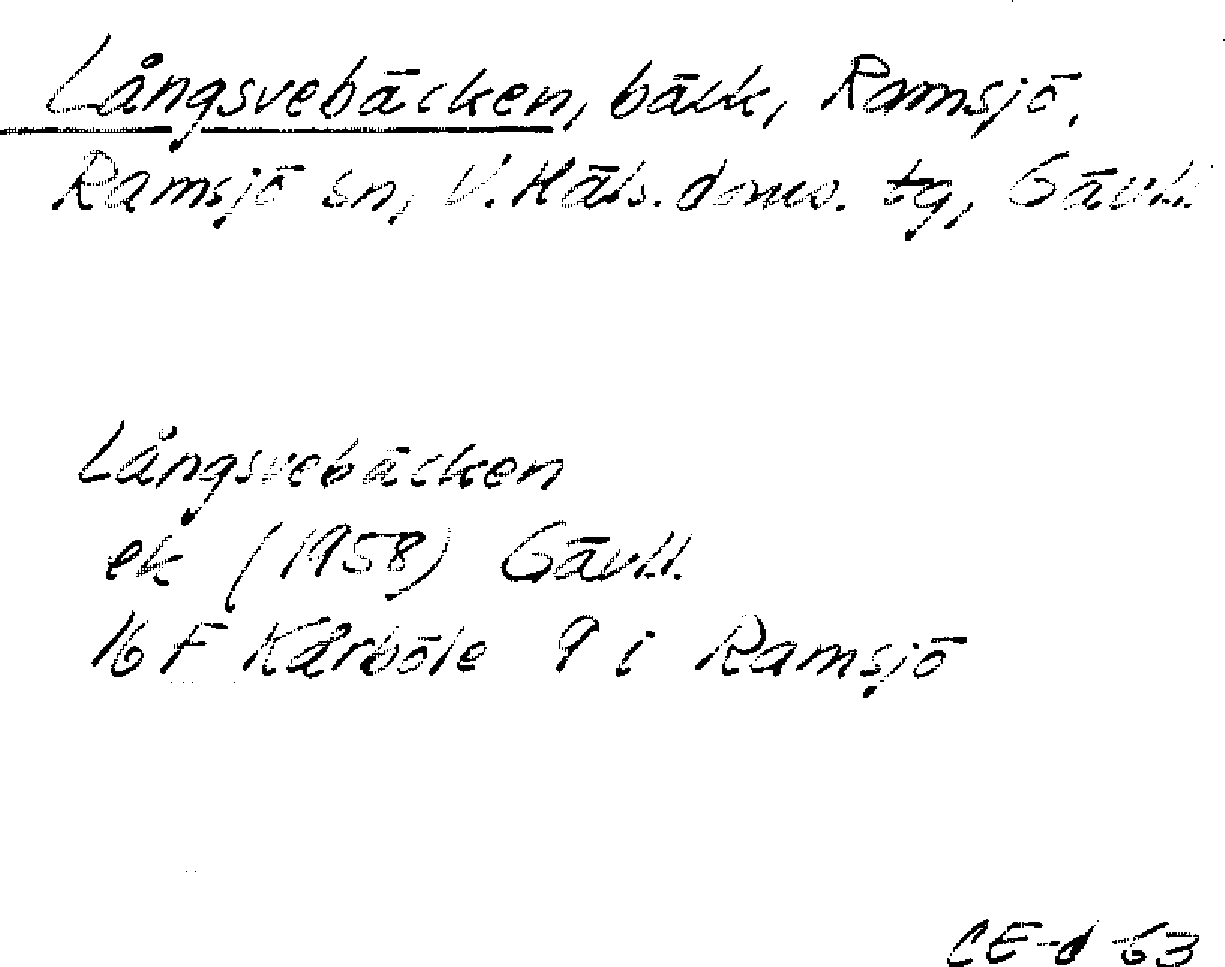 Långsvebäcken, bäck, Ramsjö,
Ramsjö sn, V. Häls. doms. tg, Gävl.
Långsvebäcken
ek (1958) Gävl.
16 F Kårböle 9 i Ramsjö
CE-d 63